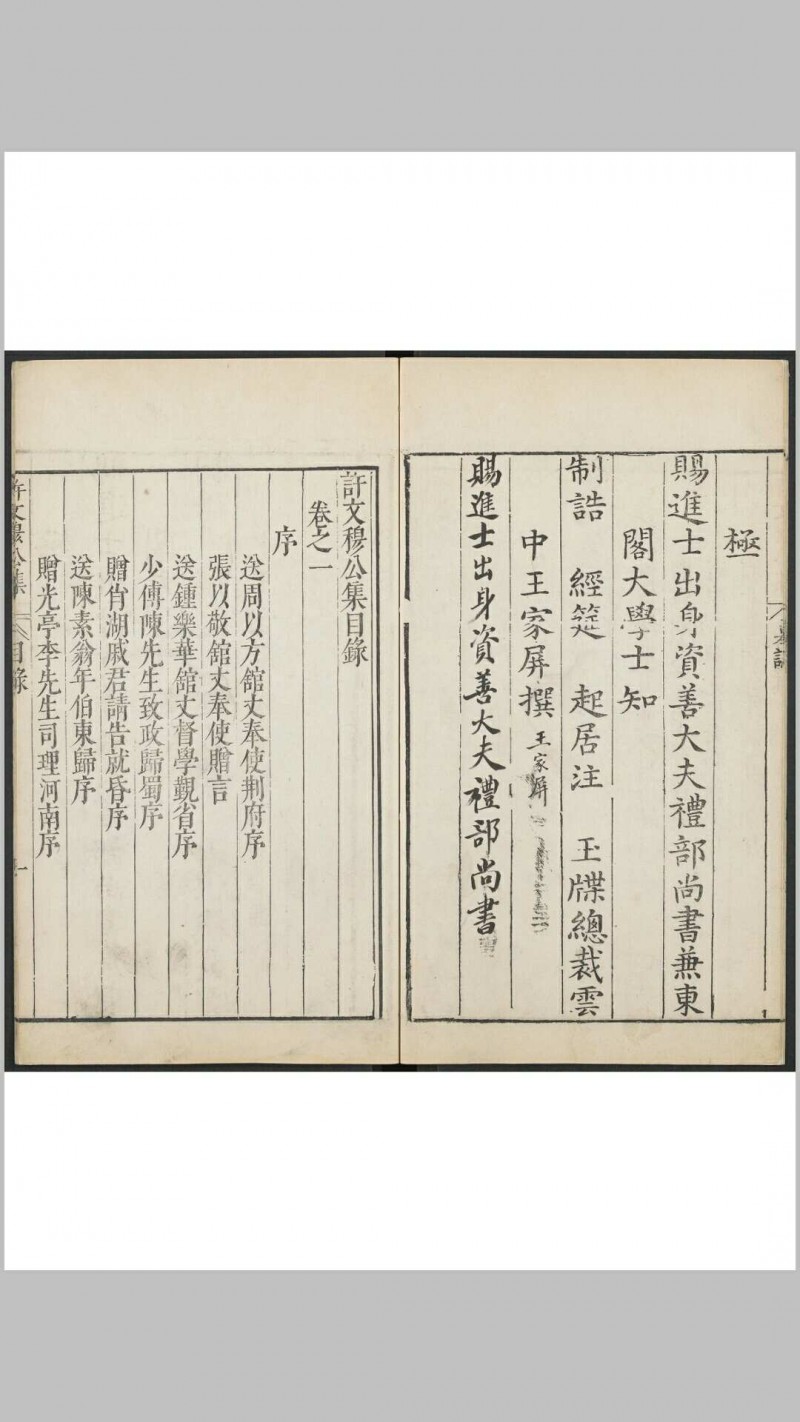 極
賜進士出身資善大夫禮部尚書兼東
閣大學士知
制誥 經筵 起居注 玉牒總裁雲
中王家屏撰 王家屏
賜進士出身資善大夫禮部尚書
許文穆公集目錄
卷之一
序
送周以方館丈奉使荆府序
張以敬館丈奉使贈言
送鍾樂華館丈督學覲省序
少傅陳先生致政歸蜀序
贈肖湖戚君請告就昏序
送陳素翁年伯東歸序
贈光亭李先生司理河南序
許文穆公集 目錄 一